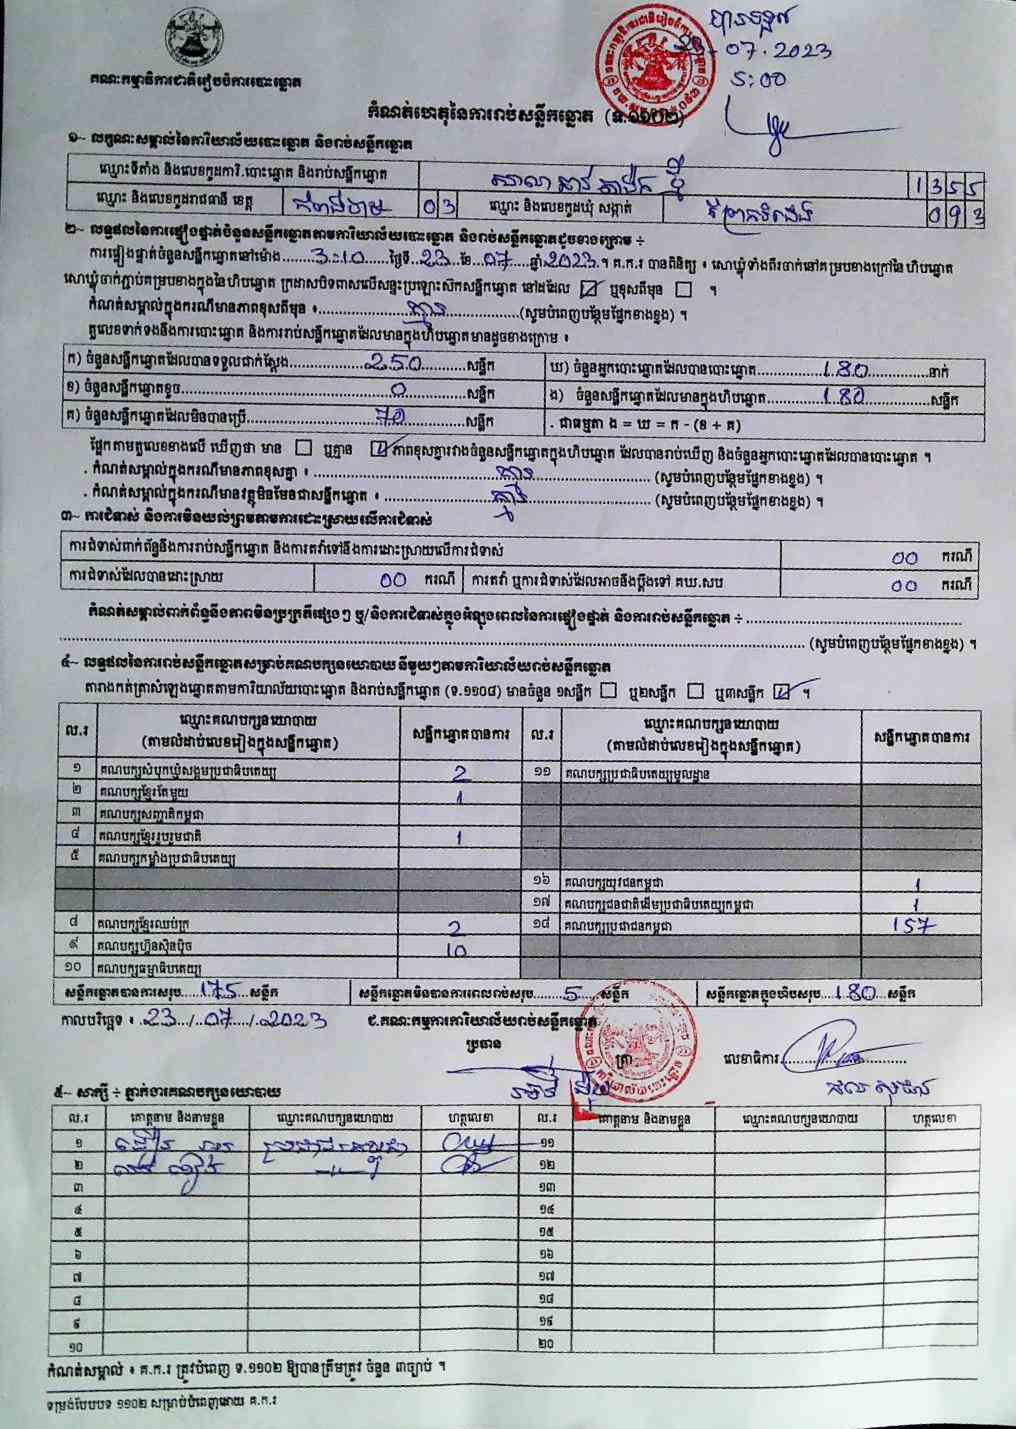 បានទទួល
23-07.2023
5:00
គណៈកម្មាធិការជាតិរៀបចំការបោះឆ្នោត
កំណត់ហេតុនៃការរាប់សន្លឹកឆ្នោត (ទ.១១០២)
១~ លក្ខណៈសម្គាល់នៃការិយាល័យបោះឆ្នោត និងរាប់សន្លឹកឆ្នោត
ឈ្មោះទីតាំង និងលេខកូដការិ.បោះឆ្នោត និងរាប់សន្លឹកឆ្នោត 1355
ឈ្មោះ និងលេខកូដរាជធានី ខេត្ត កំពង់ចាម 03 ឈ្មោះ និងលេខកូដឃុំ សង្កាត់ 093
២~ លទ្ធផលនៃការផ្ទៀងផ្ទាត់ចំនួនសន្លឹកឆ្នោតតាមការិយាល័យបោះឆ្នោត និងរាប់សន្លឹកឆ្នោតដូចខាងក្រោម ÷
ការផ្ទៀងផ្ទាត់ចំនួនសន្លឹកឆ្នោតនៅម៉ោង 3:10 ថ្ងៃទី 23 ខែ 07 ឆ្នាំ 2023 ។ គ.ក.រ បានពិនិត្យ ៖ សោឃ្លុំទាំងពីរចាក់នៅគម្របខាងក្រៅនៃហិបឆ្នោត
សោឃ្លុំចាក់ភ្ជាប់គម្របខាងក្នុងនៃហិបឆ្នោត ក្រដាសបិទពាសលើសន្ទះប្រឡោះស៊កសន្លឹកឆ្នោត នៅដដែល ☑ ឬខុសពីមុន ☐ ។
កំណត់សម្គាល់ក្នុងករណីមានភាពខុសពីមុន ៖ គ្មាន (សូមបំពេញបន្ថែមផ្នែកខាងខ្នង) ។
តួលេខទាក់ទងនឹងការបោះឆ្នោត និងការរាប់សន្លឹកឆ្នោតដែលមានក្នុងហិបឆ្នោតមានដូចខាងក្រោម ៖
ក) ចំនួនសន្លឹកឆ្នោតដែលបានទទួលជាក់ស្តែង 250 សន្លឹក ឃ) ចំនួនអ្នកបោះឆ្នោតដែលបានបោះឆ្នោត 180 នាក់
ខ) ចំនួនសន្លឹកឆ្នោតខូច 0 សន្លឹក ង) ចំនួនសន្លឹកឆ្នោតដែលមានក្នុងហិបឆ្នោត 180 សន្លឹក
គ) ចំនួនសន្លឹកឆ្នោតដែលមិនបានប្រើ 70 សន្លឹក . ជាធម្មតា ង = ឃ = ក - (ខ + គ)
ផ្អែកតាមតួលេខខាងលើ ឃើញថា មាន ☐ ឬគ្មាន ☑ ភាពខុសគ្នារវាងចំនួនសន្លឹកឆ្នោតក្នុងហិបឆ្នោត ដែលបានរាប់ឃើញ និងចំនួនអ្នកបោះឆ្នោតដែលបានបោះឆ្នោត ។
. កំណត់សម្គាល់ក្នុងករណីមានភាពខុសគ្នា ៖ គ្មាន (សូមបំពេញបន្ថែមផ្នែកខាងខ្នង) ។
. កំណត់សម្គាល់ក្នុងករណីមានវត្ថុមិនមែនជាសន្លឹកឆ្នោត ៖ គ្មាន (សូមបំពេញបន្ថែមផ្នែកខាងខ្នង) ។
៣~ ការជំទាស់ និងការមិនយល់ព្រមតាមការដោះស្រាយលើការជំទាស់
ការជំទាស់ពាក់ព័ន្ធនឹងការរាប់សន្លឹកឆ្នោត និងការតវ៉ាទៅនឹងការដោះស្រាយលើការជំទាស់ 00 ករណី
ការជំទាស់ដែលបានដោះស្រាយ 00 ករណី ការតវ៉ា ឬការជំទាស់ដែលអាចនឹងប្តឹងទៅ គឃ.សប 00 ករណី
កំណត់សម្គាល់ពាក់ព័ន្ធនឹងភាពមិនប្រក្រតីផ្សេងៗ ឬ/និងការជំទាស់ក្នុងអំឡុងពេលនៃការផ្ទៀងផ្ទាត់ និងការរាប់សន្លឹកឆ្នោត ÷
(សូមបំពេញបន្ថែមផ្នែកខាងខ្នង) ។
៤~ លទ្ធផលនៃការរាប់សន្លឹកឆ្នោតសម្រាប់គណបក្សនយោបាយ នីមួយៗតាមការិយាល័យរាប់សន្លឹកឆ្នោត
តារាងកត់ត្រាសំឡេងឆ្នោតតាមការិយាល័យបោះឆ្នោត និងរាប់សន្លឹកឆ្នោត (ទ.១១០៨) មានចំនួន ១សន្លឹក ☐ ឬ២សន្លឹក ☐ ឬ៣សន្លឹក ☑ ។
ល.រ ឈ្មោះគណបក្សនយោបាយ (តាមលំដាប់លេខរៀងក្នុងសន្លឹកឆ្នោត) សន្លឹកឆ្នោតបានការ ល.រ ឈ្មោះគណបក្សនយោបាយ (តាមលំដាប់លេខរៀងក្នុងសន្លឹកឆ្នោត) សន្លឹកឆ្នោតបានការ
១ គណបក្សសំបុកឃ្មុំសង្គមប្រជាធិបតេយ្យ 2 ១១ គណបក្សប្រជាធិបតេយ្យមូលដ្ឋាន
២ គណបក្សខ្មែរតែមួយ 1
៣ គណបក្សសញ្ជាតិកម្ពុជា
៤ គណបក្សខ្មែររួបរួមជាតិ 1
៥ គណបក្សកម្លាំងប្រជាធិបតេយ្យ
១៦ គណបក្សយុវជនកម្ពុជា 1
១៧ គណបក្សជនជាតិដើមប្រជាធិបតេយ្យកម្ពុជា 1
៨ គណបក្សខ្មែរឈប់ក្រ 2 ១៨ គណបក្សប្រជាជនកម្ពុជា 157
៩ គណបក្សហ្វ៊ុនស៊ិនប៉ិច 10
១០ គណបក្សធម្មាធិបតេយ្យ
សន្លឹកឆ្នោតបានការសរុប 175 សន្លឹក សន្លឹកឆ្នោតមិនបានការពេលរាប់សរុប 5 សន្លឹក សន្លឹកឆ្នោតក្នុងហិបសរុប 180 សន្លឹក
កាលបរិច្ឆេទ ៖ 23/07/2023 ជ.គណៈកម្មការការិយាល័យរាប់សន្លឹកឆ្នោត
ប្រធាន ត្រា លេខាធិការ
៥~ សាក្សី ÷ ភ្នាក់ងារគណបក្សនយោបាយ
ល.រ គោត្តនាម និងនាមខ្លួន ឈ្មោះគណបក្សនយោបាយ ហត្ថលេខា ល.រ គោត្តនាម និងនាមខ្លួន ឈ្មោះគណបក្សនយោបាយ ហត្ថលេខា
១ ១១
២ ១២
៣ ១៣
៤ ១៤
៥ ១៥
៦ ១៦
៧ ១៧
៨ ១៨
៩ ១៩
១០ ២០
កំណត់សម្គាល់ ៖ គ.ក.រ ត្រូវបំពេញ ទ.១១០២ ឱ្យបានត្រឹមត្រូវ ចំនួន ៣ច្បាប់ ។
ទម្រង់បែបបទ ១១០២ សម្រាប់បំពេញដោយ គ.ក.រ